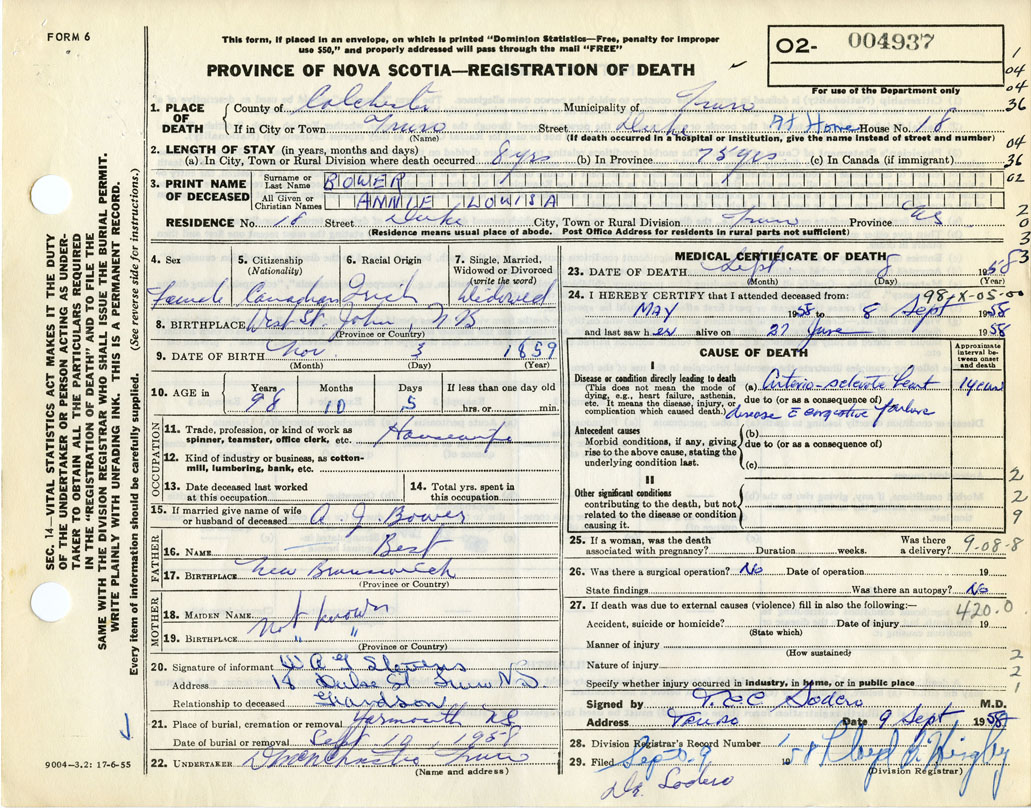 FORM 6
This form, if placed in an envelope, on which is printed "Dominion Statistics—Free, penalty for improper
use $50," and properly addressed will pass through the mail "FREE"
O2- 004937
PROVINCE OF NOVA SCOTIA—REGISTRATION OF DEATH
For use of the Department only
1. PLACE OF DEATH County of Colchester Municipality of Truro
If in City or Town Truro Street Duke At Home House No. 18
(Name) (If death occurred in a hospital or institution, give the name instead of street and number)
2. LENGTH OF STAY (in years, months and days)
(a). In City, Town or Rural Division where death occurred 8 yrs (b) In Province 75 yrs (c) In Canada (if immigrant)
3. PRINT NAME OF DECEASED Surname or Last Name BOWER
All Given or Christian Names ANNIE LOUISA
RESIDENCE No. 18 Street Duke City, Town or Rural Division Truro Province NS
(Residence means usual place of abode. Post Office Address for residents in rural parts not sufficient)
1
04
04
36
04
36
02
2
0
3
3
SEC. 14—VITAL STATISTICS ACT MAKES IT THE DUTY
OF THE UNDERTAKER OR PERSON ACTING AS UNDER-
TAKER TO OBTAIN ALL THE PARTICULARS REQUIRED
IN THE "REGISTRATION OF DEATH" AND TO FILE THE
SAME WITH THE DIVISION REGISTRAR WHO SHALL ISSUE THE BURIAL PERMIT.
WRITE PLAINLY WITH UNFADING INK. THIS IS A PERMANENT RECORD.
Every item of information should be carefully supplied. (See reverse side for instructions.)
4. Sex 5. Citizenship (Nationality) 6. Racial Origin 7. Single, Married, Widowed or Divorced (write the word)
Female Canadian Irish Widowed
8. BIRTHPLACE West St. John, NB
(Province or Country)
9. DATE OF BIRTH Nov. 3 1859
(Month) (Day) (Year)
10. AGE in Years 98 Months 10 Days 5 If less than one day old
hrs. or min.
OCCUPATION
11. Trade, profession, or kind of work as
spinner, teamster, office clerk, etc. Housewife
12. Kind of industry or business, as cotton-
mill, lumbering, bank, etc.
13. Date deceased last worked
at this occupation
14. Total yrs. spent in
this occupation
15. If married give name of wife
or husband of deceased A. J. Bower
FATHER
16. NAME Best
17. BIRTHPLACE New Brunswick
(Province or Country)
MOTHER
18. MAIDEN NAME Not known
19. BIRTHPLACE " "
(Province or Country)
20. Signature of informant W A G Stevens
Address 18 Duke St Truro N.S.
Relationship to deceased Grandson
21. Place of burial, cremation or removal Yarmouth NS
Date of burial or removal Sept 10, 1958
22. UNDERTAKER Truro
(Name and address)
9004—3.2: 17-6-55
MEDICAL CERTIFICATE OF DEATH
23. DATE OF DEATH Sept 8 1958
(Month) (Day) (Year)
24. I HEREBY CERTIFY that I attended deceased from: 98-X-05-00
MAY 1958 to 8 Sept 1958
and last saw her alive on 27 June 1958
CAUSE OF DEATH
Approximate
interval be-
tween onset
and death
I
Disease or condition directly leading to death
(This does not mean the mode of
dying, e.g., heart failure, asthenia,
etc. It means the disease, injury, or
complication which caused death.)
(a) Arterio-sclerotic heart 1 year
due to (or as a consequence of)
disease c congestive failure
Antecedent causes
Morbid conditions, if any, giving
rise to the above cause, stating the
underlying condition last.
(b)
due to (or as a consequence of)
(c)
II
Other significant conditions
contributing to the death, but not
related to the disease or condition
causing it.
2
2
9
25. If a woman, was the death
associated with pregnancy? Duration weeks. Was there
a delivery? 9-08-8
26. Was there a surgical operation? No Date of operation 19
State findings Was there an autopsy? No
27. If death was due to external causes (violence) fill in also the following:— 420.0
Accident, suicide or homicide? Date of injury 19
(State which)
Manner of injury
(How sustained)
Nature of injury
Specify whether injury occurred in industry, in home, or in public place
2
2
1
Signed by T. C C Sodero M.D.
Address Truro Date 9 Sept 1958
28. Division Registrar's Record Number
29. Filed Sept 9 1958 Lloyd
(Division Registrar)
Dr. Sodero